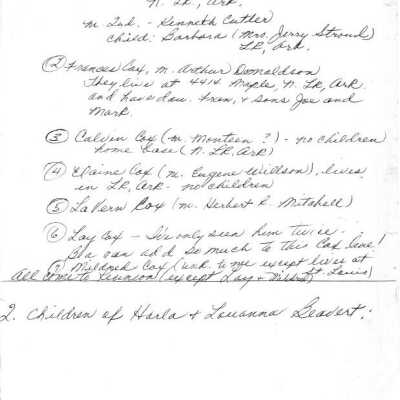 N. LR, Ark.
m. 2nd. - Kenneth Cutler
child: Barbara (Mrs. Jerry Stroud
LR, Ark.
② Frances Cox, m. Arthur Donaldson
They live at 4414 Maple, N. LR, Ark
and have dau. Fran, & sons Joe and
Mark.
③ Calvin Cox (m. Monteen ?) - no children
home base (N. LR, Ark)
④ Elaine Cox (m. Eugene Willson), lives
in LR, Ark - no children
⑤ LaVern Cox (m. Herbert R. Mitchell)
⑥ Loy Cox - I've only seen him twice.
so much to this Cox line!
⑦ Mildred Cox (unk. to me except lives at
St. Louis)
All come to reunion (except Loy & Mildred)
2. Children of Harla & Louanna Beavert: